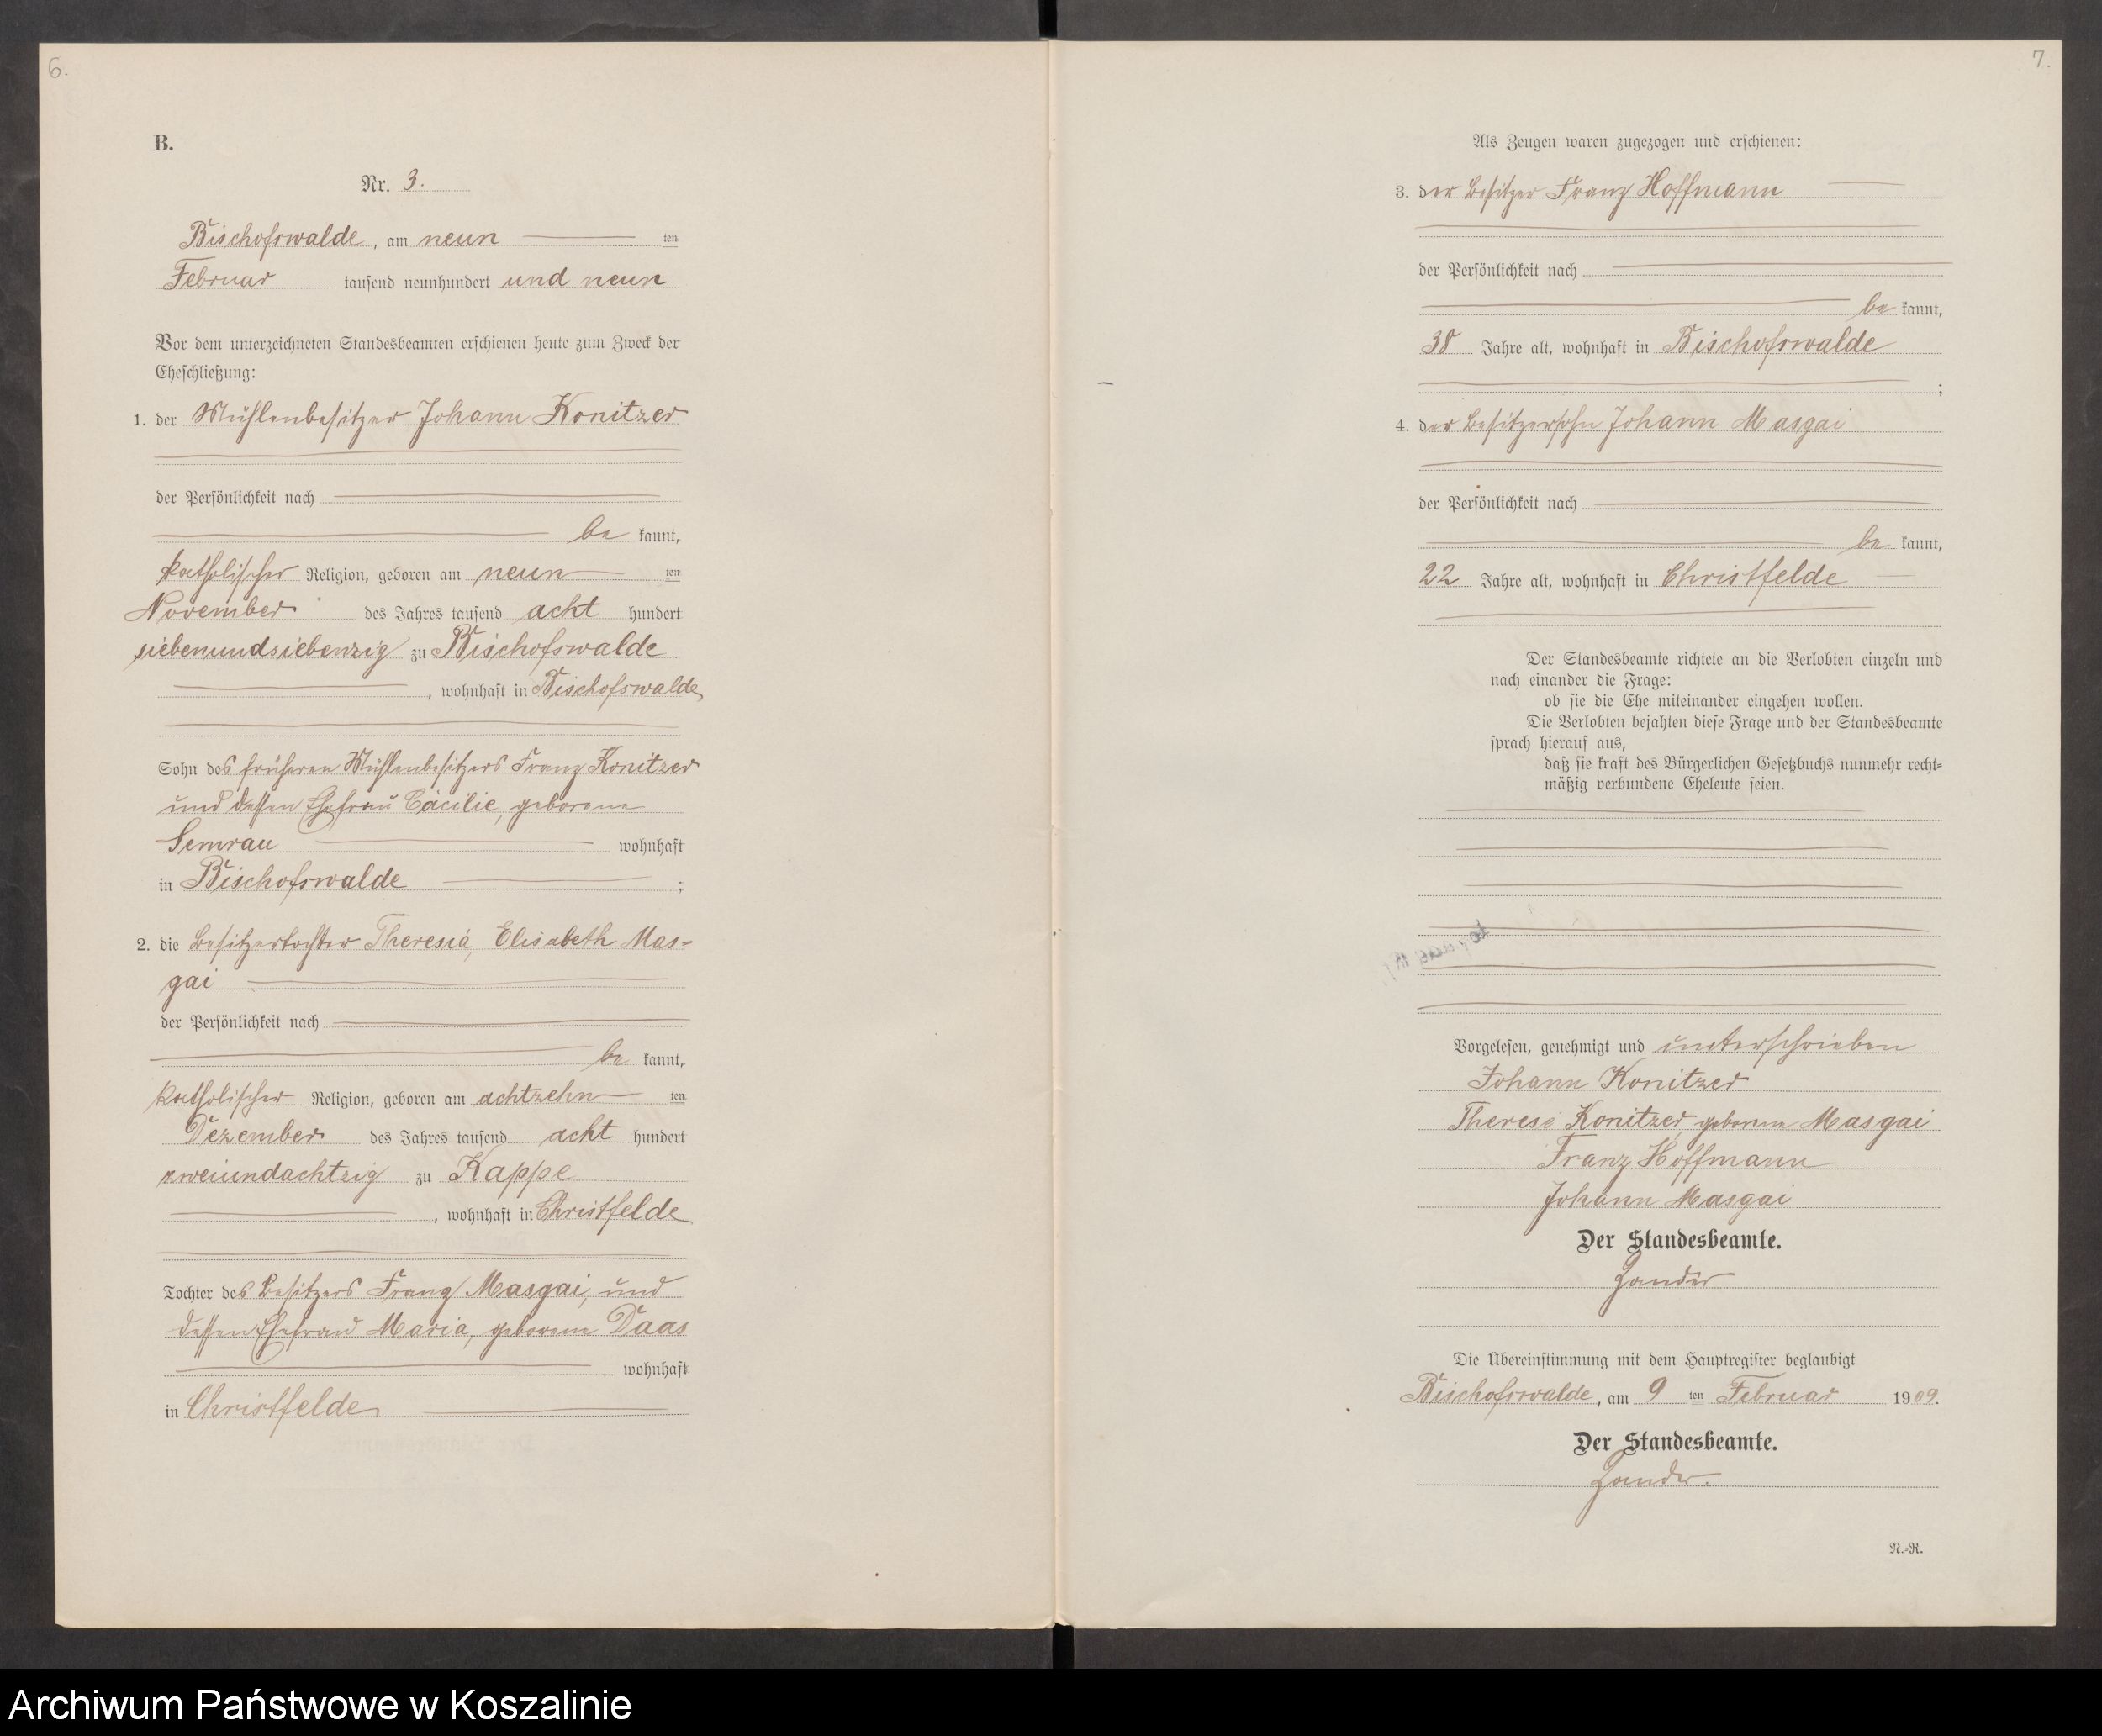 6.
B.
Nr. 3.
Bischofswalde, am neun ten
Februar tausend neunhundert und neun
Vor dem unterzeichneten Standesbeamten erschienen heute zum Zweck der
Eheschließung:
1. der Mühlenbesitzer Johann Konitzer
der Persönlichkeit nach
be kannt,
katholischer Religion, geboren am neun ten
November des Jahres tausend acht hundert
siebenundsiebenzig zu Bischofswalde
, wohnhaft in Bischofswalde
Sohn des früheren Mühlenbesitzers Franz Konitzer
und dessen Ehefrau Cäcilie, geborene
Semrau wohnhaft
in Bischofswalde ;
2. die Besitzertochter Theresia, Elisabeth Mas-
gai
der Persönlichkeit nach
be kannt,
katholischer Religion, geboren am achtzehn ten
Dezember des Jahres tausend acht hundert
zweiundachtzig zu Kappe
, wohnhaft in Christfelde
Tochter des Besitzers Franz Masgai, und
dessen Ehefrau Maria, geborene Daas
wohnhaft
in Christfelde
7.
Als Zeugen waren zugezogen und erschienen:
3. der Besitzer Franz Hoffmann
der Persönlichkeit nach
be kannt,
38 Jahre alt, wohnhaft in Bischofswalde
;
4. der Besitzersohn Johann Masgai
der Persönlichkeit nach
be kannt,
22 Jahre alt, wohnhaft in Christfelde
Der Standesbeamte richtete an die Verlobten einzeln und
nach einander die Frage:
ob sie die Ehe miteinander eingehen wollen.
Die Verlobten bejahten diese Frage und der Standesbeamte
sprach hierauf aus,
daß sie kraft des Bürgerlichen Gesetzbuchs nunmehr recht-
mäßig verbundene Eheleute seien.
Vorgelesen, genehmigt und unterschrieben
Johann Konitzer
Therese Konitzer geborene Masgai
Franz Hoffmann
Johann Masgai
Der Standesbeamte.
Zander
Die Übereinstimmung mit dem Hauptregister beglaubigt
Bischofswalde, am 9 ten Februar 1909.
Der Standesbeamte.
Zander.
N.-R.
Archiwum Państwowe w Koszalinie